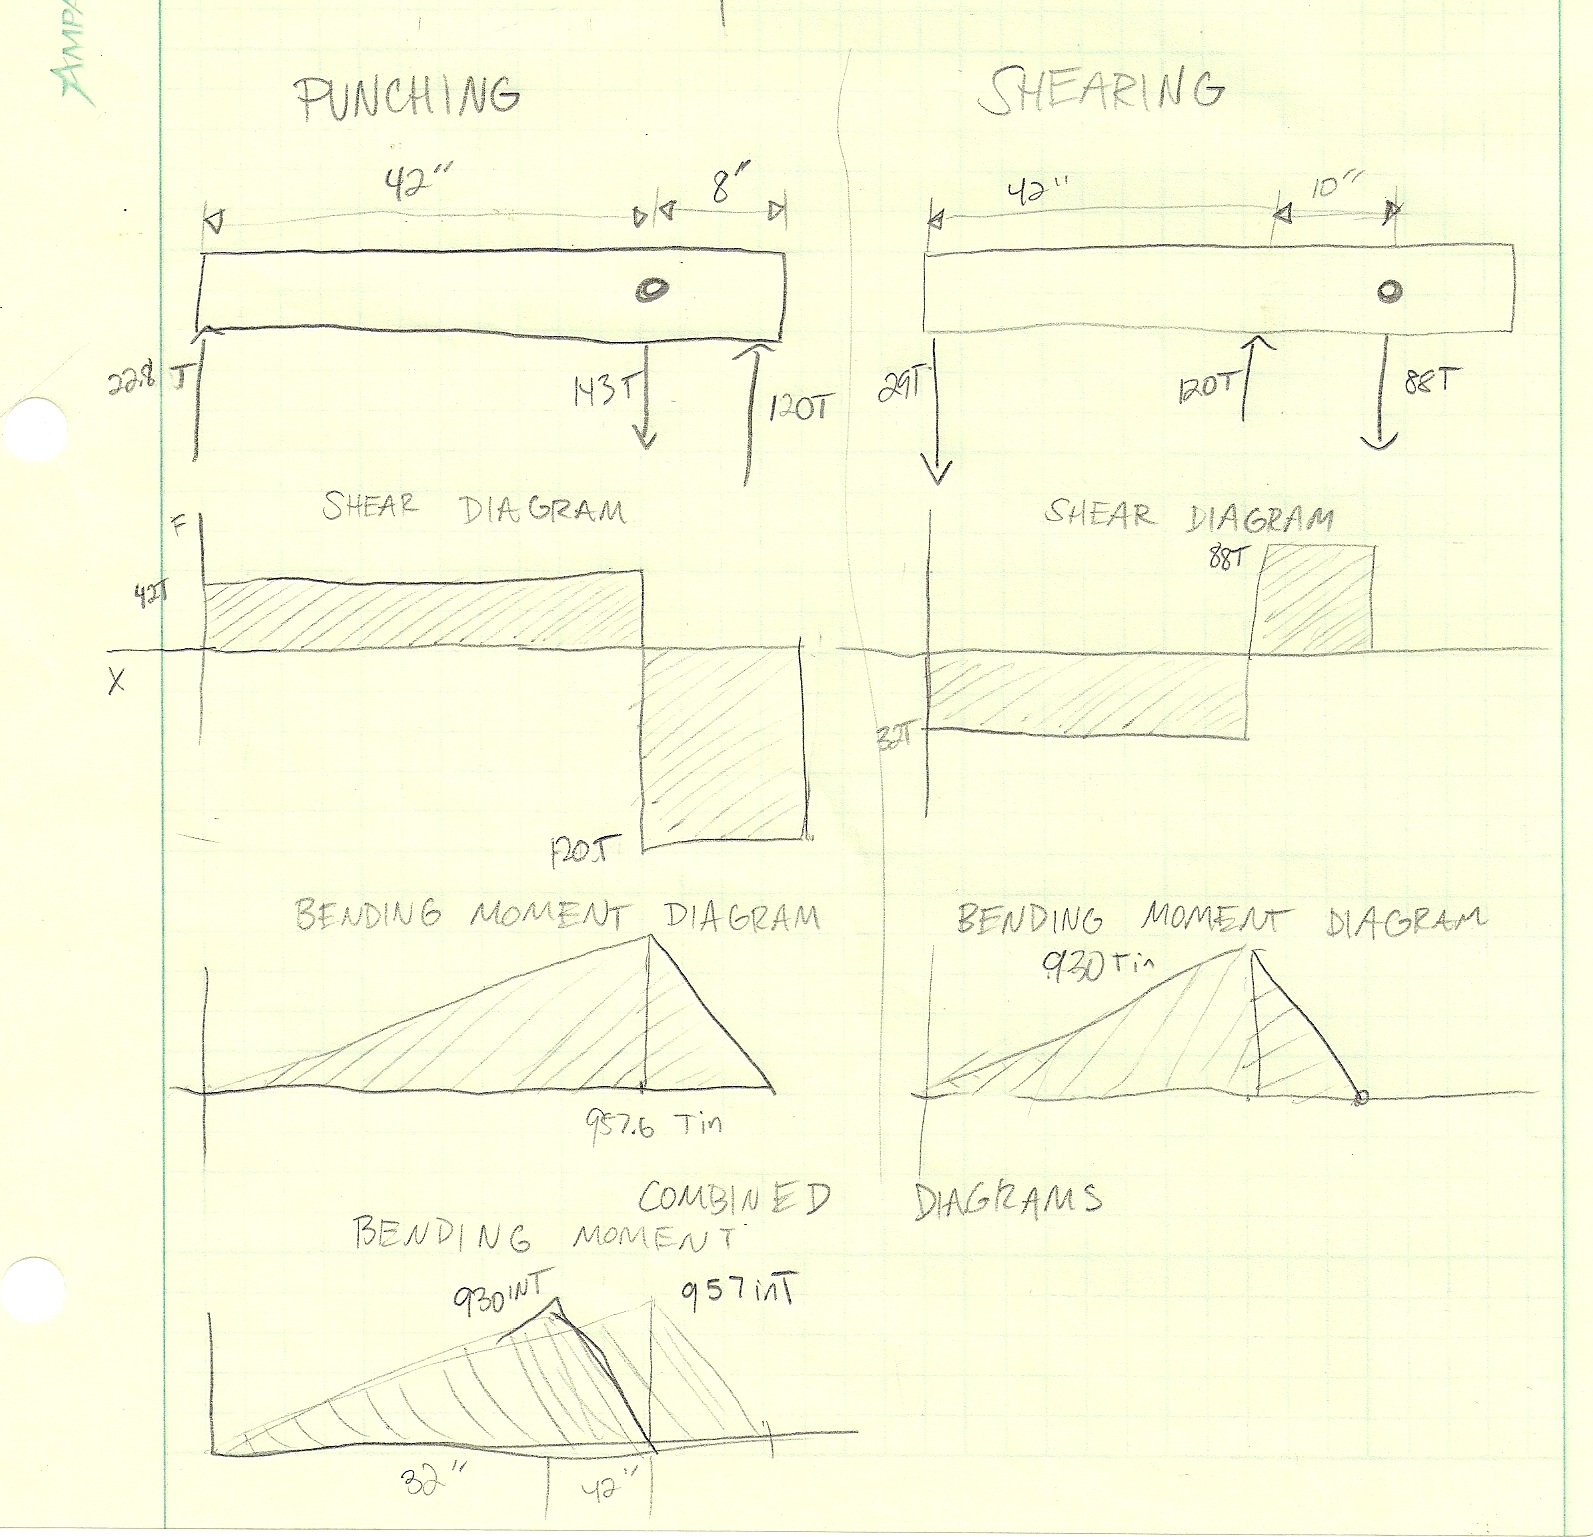 AMPA
PUNCHING
SHEARING
42"
8"
42"
10"
22.8 T
143T
120T
29T
120T
88T
SHEAR DIAGRAM
SHEAR DIAGRAM
F
42T
X
120T
88T
32T
BENDING MOMENT DIAGRAM
BENDING MOMENT DIAGRAM
957.6 Tin
930 Tin
COMBINED DIAGRAMS
BENDING MOMENT
930 INT
957 inT
32"
42"